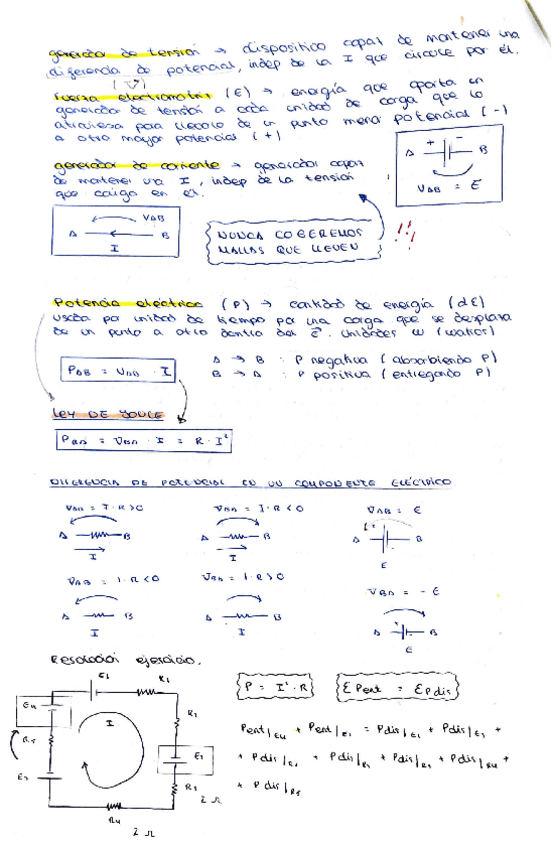 generador de tensión → dispositivo capaz de mantener una
diferencia de potencial, indep de la I que circule por él.
(V)
Fuerza electromotriz (E) → energía que aporta un
generador de tensión a cada unidad de carga que lo
atraviesa para llevarlo de un punto menor potencial (-)
a otro mayor potencial (+)
A + - B
VAB = E
generador de corriente → generador capaz
de mantener una I, indep de la tensión
que caiga en él.
VAB
A B
I
NUNCA COGEREMOS
MALLAS QUE LLEVEN
!!
Potencia eléctrica (P) → cantidad de energía (dE)
usada por unidad de tiempo por una carga que se desplaza
de un punto a otro dentro del E. Unidades W (watios)
PAB = VAB · I
A → B : P negativa (absorbiendo P)
B → A : P positiva (entregando P)
LEY DE JOULE
PAB = VAB · I = R · I²
DIFERENCIA DE POTENCIAL EN UN COMPONENTE ELÉCTRICO
VAB = I · R > 0
A B
I
VBA = I · R < 0
A B
I
VAB = E
A B
E
VAB = I · R < 0
A B
I
VBA = I · R > 0
A B
I
VBA = - E
A B
E
Resolución ejercicio.
P = I² · R
Σ Pent = Σ Pdis
E1 R1
E4
I
R2
R5
E2
E3
R3
2 Ω
R4
2 Ω
Pent|E4 + Pent|E1 = Pdis|E2 + Pdis|E3 +
+ Pdis|R1 + Pdis|R2 + Pdis|R3 + Pdis|R4 +
+ Pdis|R5